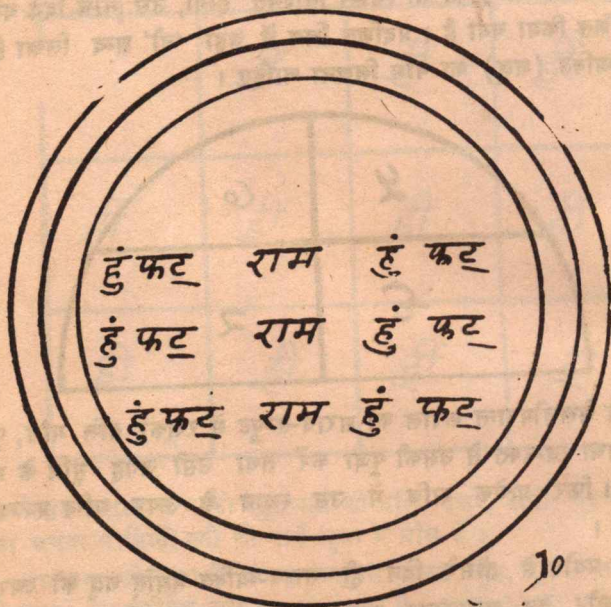 हुं फट् राम हुं फट्
हुं फट् राम हुं फट्
हुं फट् राम हुं फट्
10